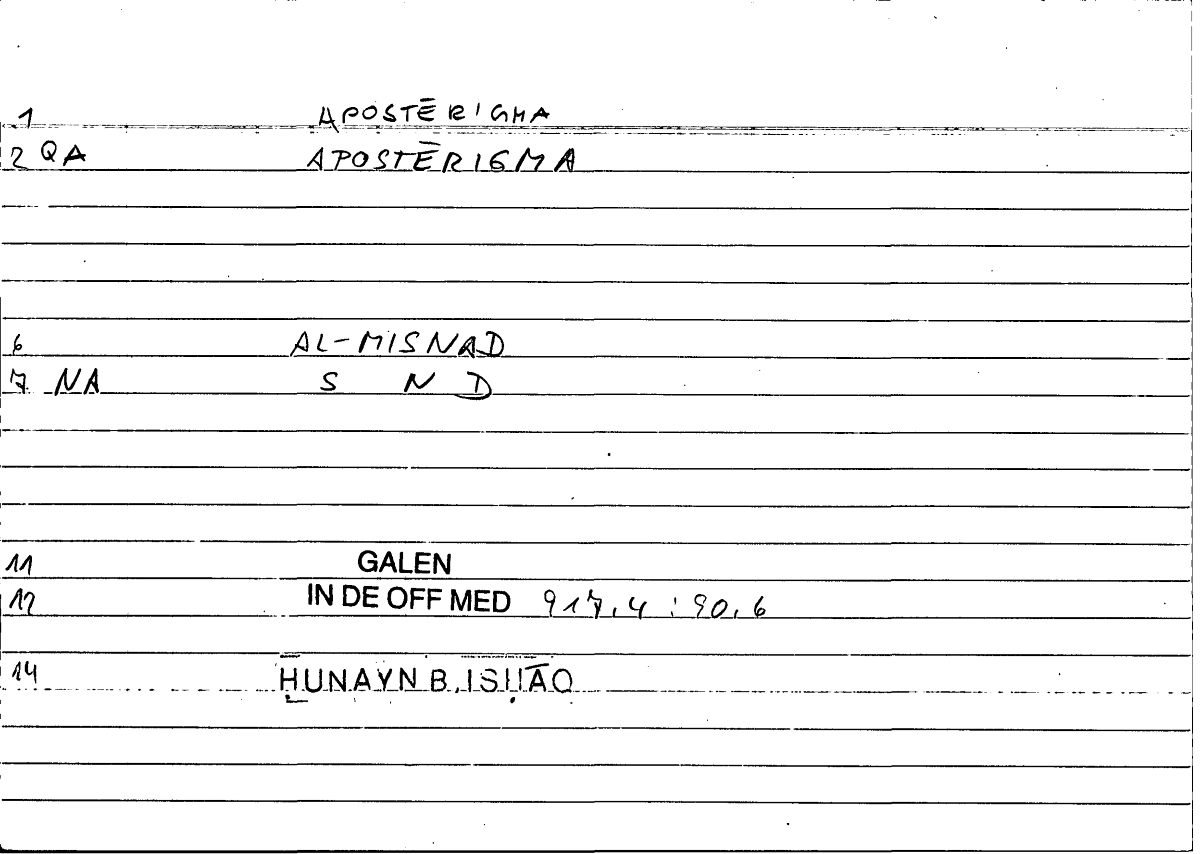 1 APOSTĒRIGMA
2 QA APOSTĒRIGMA
6 AL-MISNAD
7 NA S N D
11 GALEN
12 IN DE OFF MED 917,4 : 90,6
14 ḤUNAYN B. ISḤĀQ